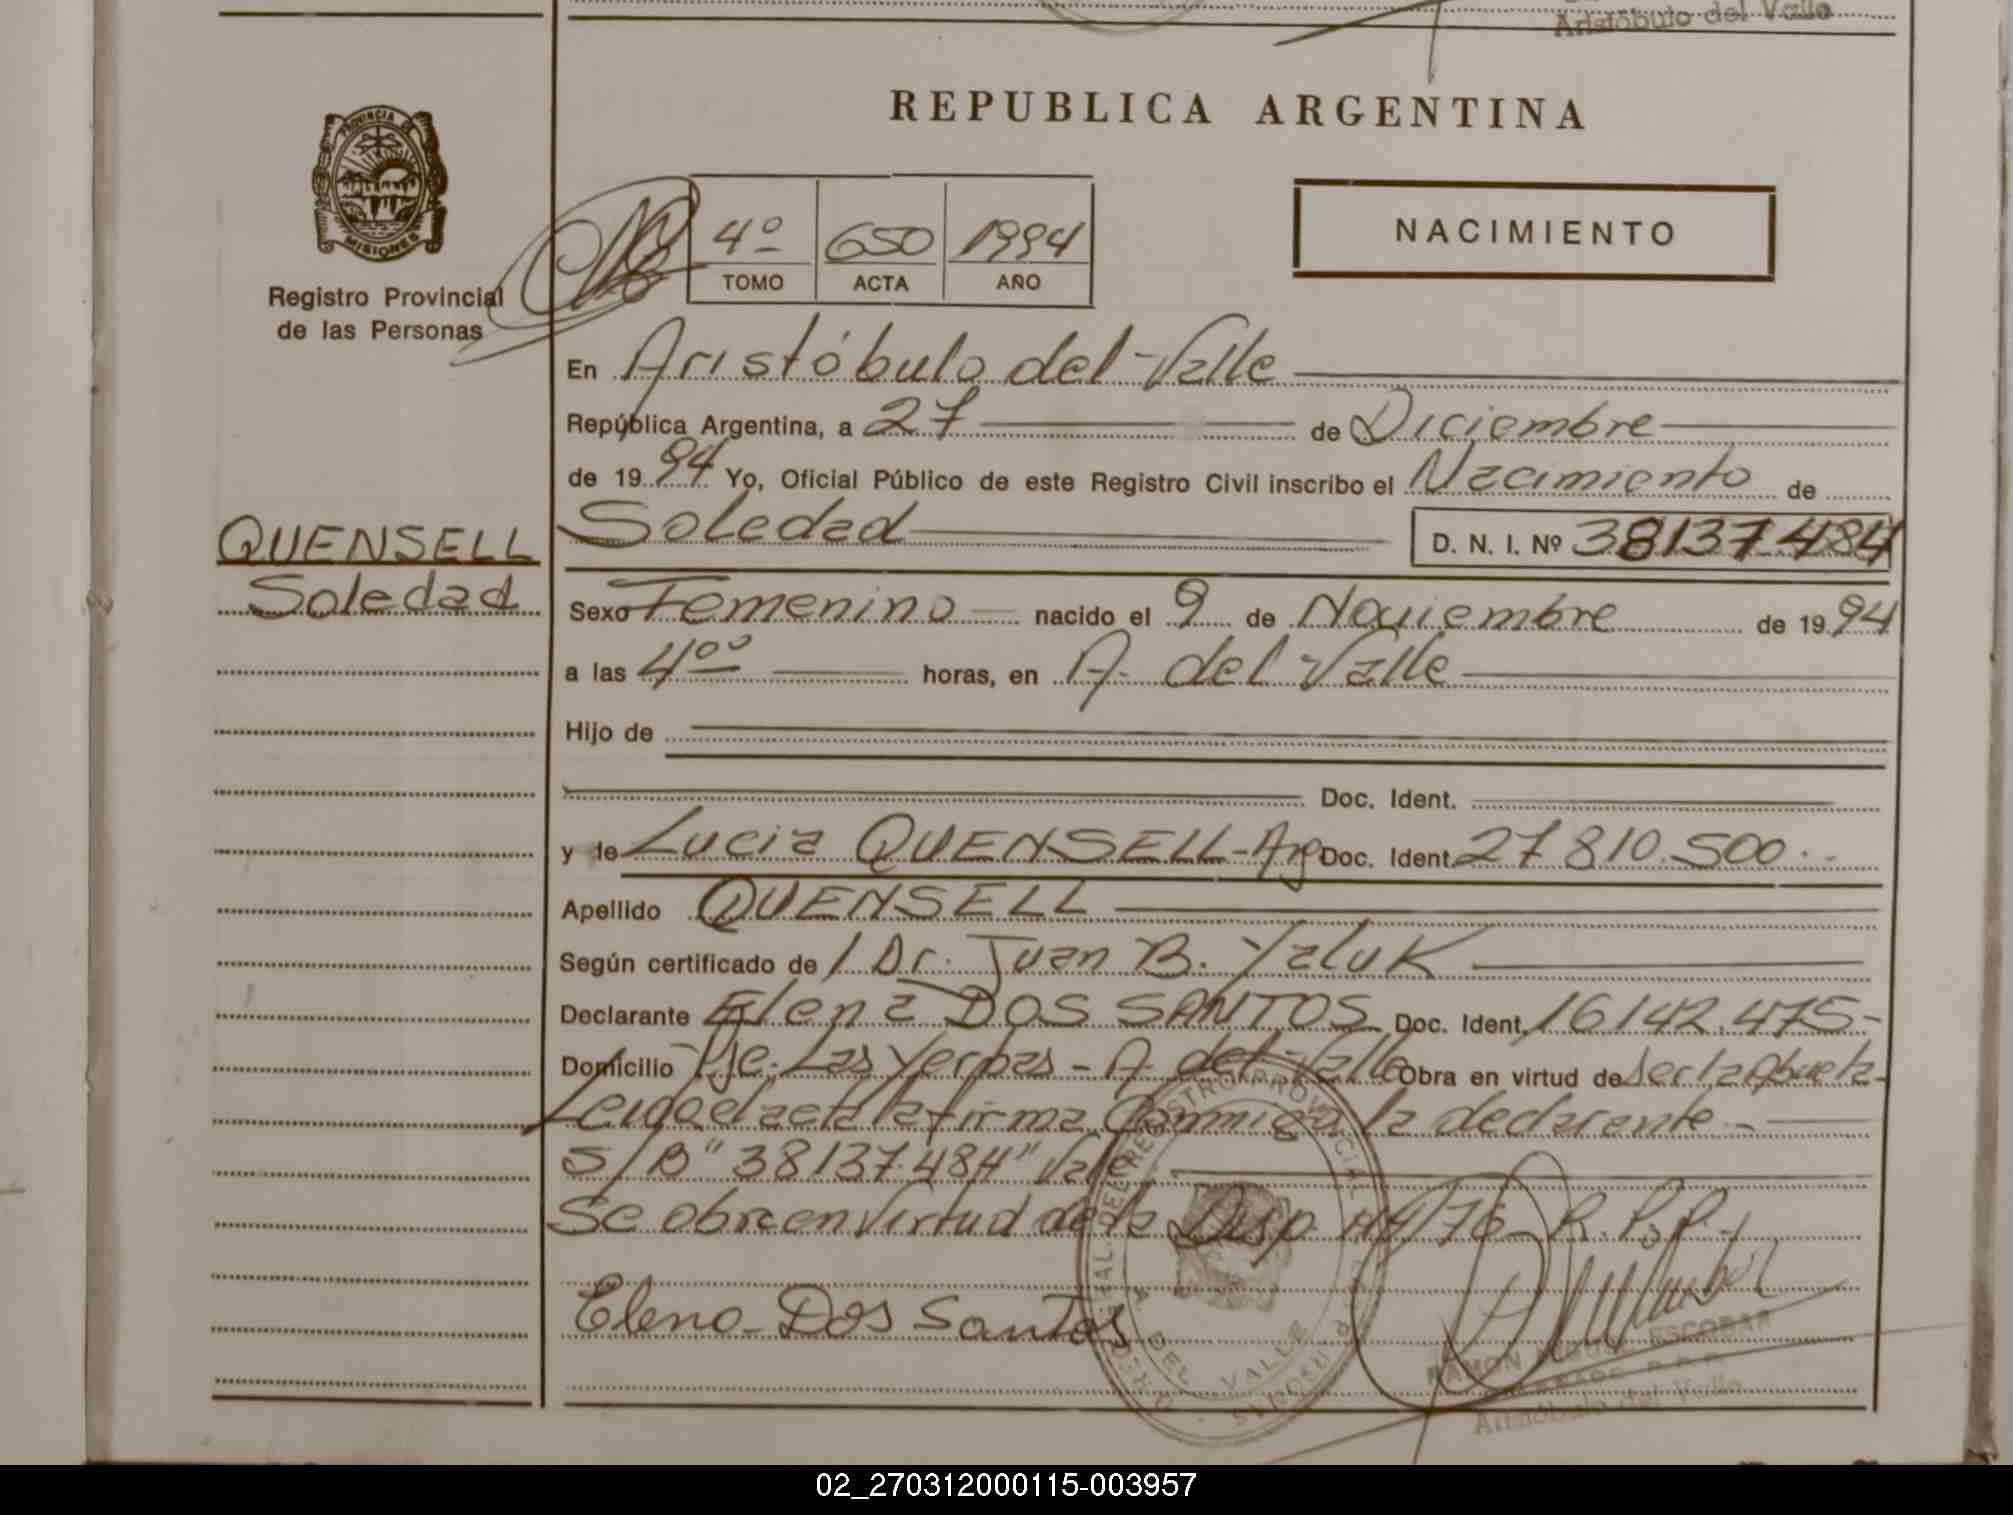 Aristóbulo del Valle
REPUBLICA ARGENTINA
PROVINCIA DE
MISIONES
Registro Provincial
de las Personas
4º 650 1994
TOMO ACTA AÑO
NACIMIENTO
En Aristóbulo del Valle
República Argentina, a 27 de Diciembre
de 1994 Yo, Oficial Público de este Registro Civil inscribo el Nacimiento de
QUENSELL
Soledad
Soledad D. N. I. Nº 38137484
Sexo Femenino nacido el 9 de Noviembre de 1994
a las 4⁰⁰ horas, en A. del Valle
Hijo de
Doc. Ident.
y de Lucia QUENSELL-Arg Doc. Ident. 27 810.500.-
Apellido QUENSELL
Según certificado de Dr. Juan B. Yaluk
Declarante Elena DOS SANTOS Doc. Ident. 16142.475-
Domicilio Pje. Las Yerbas - A. del Valle Obra en virtud de ser la Abuela-
Leida el acta la firma Conmigo la declarante-
S/B "38137.484" Vale
Se obra en Virtud de la Disp. R.P.P.-
Elena Dos Santos
RAMON ESCOBAR
Aristóbulo del Valle
REGISTRO PROVINCIAL
DEL VALLE
MISIONES
02_270312000115-003957